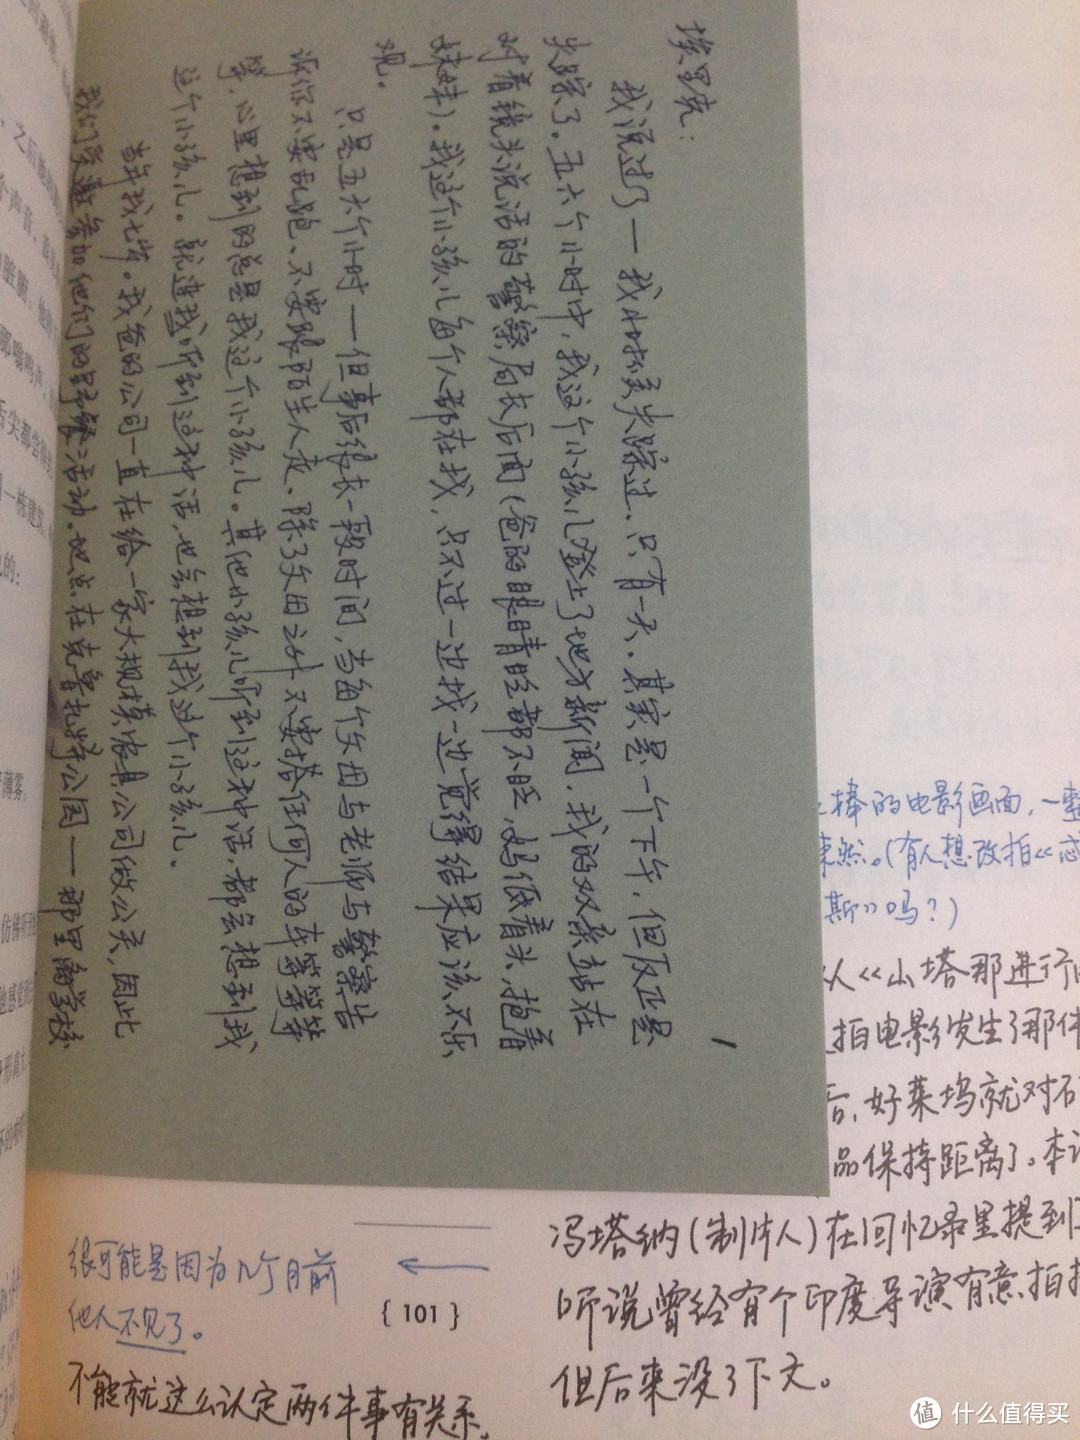 埃里克：
我说过了——我小时候失踪过、只有一天。其实是一个下午，但反正是
失踪了。五六个小时中，我这个小孩儿登上了地方新闻，我的双亲站在
对着镜头说话的警察局长后面（爸的眼睛眨都不眨，妈低着头，抱着
妹妹）。我这个小孩儿每个人都在找，只不过一边找一边觉得结果应该不乐
观。
只是五六个小时——但事后很长一段时间，当每个父母与老师与警察告
诉你不要乱跑、不要跟陌生人走、除了父母之外不要搭任何人的车等等等
等，心里想到的总是我这个小孩儿。其他小孩儿听到这种话，都会想到我
这个小孩儿。就连我听到这种话，也会想到我这个小孩儿。
当年我七岁。我爸的公司一直在给一家大规模农具公司做公关，因此
我们受邀参加他们的野餐活动。地点在克鲁扎特公园——那里离学校
1
之后
个声音，
脏腑。他
那嗡鸣声
舌尖都尝得
一栋建筑
的：
薄雾。
仿佛
他感觉
棒的电影画面，一整
然。（有人想改拍《忒
斯》吗？）
从《山塔那进行
拍电影发生了那件
后，好莱坞就对石
品保持距离了。本
冯塔纳（制片人）在回忆录里提到
听说曾经有个印度导演有意拍
但后来没了下文。
很可能是因为几个月前
他人不见了。
{ 101 }
不能就这么认定两件事有关系。
值 什么值得买